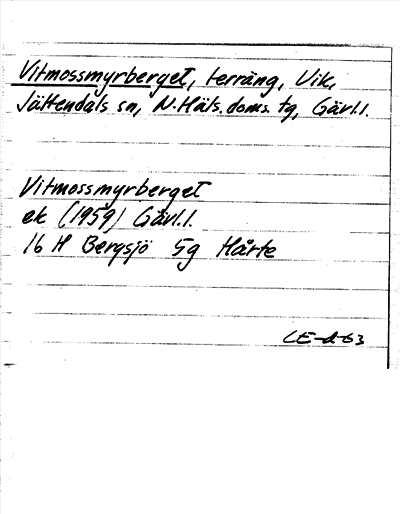 Vitmossmyrberget, terräng, Vik,
Jättendals sn, N. Häls. doms. tg, Gävl.l.
Vitmossmyrberget
ek (1959) Gävl.l.
16 H Bergsjö 5g Hårte